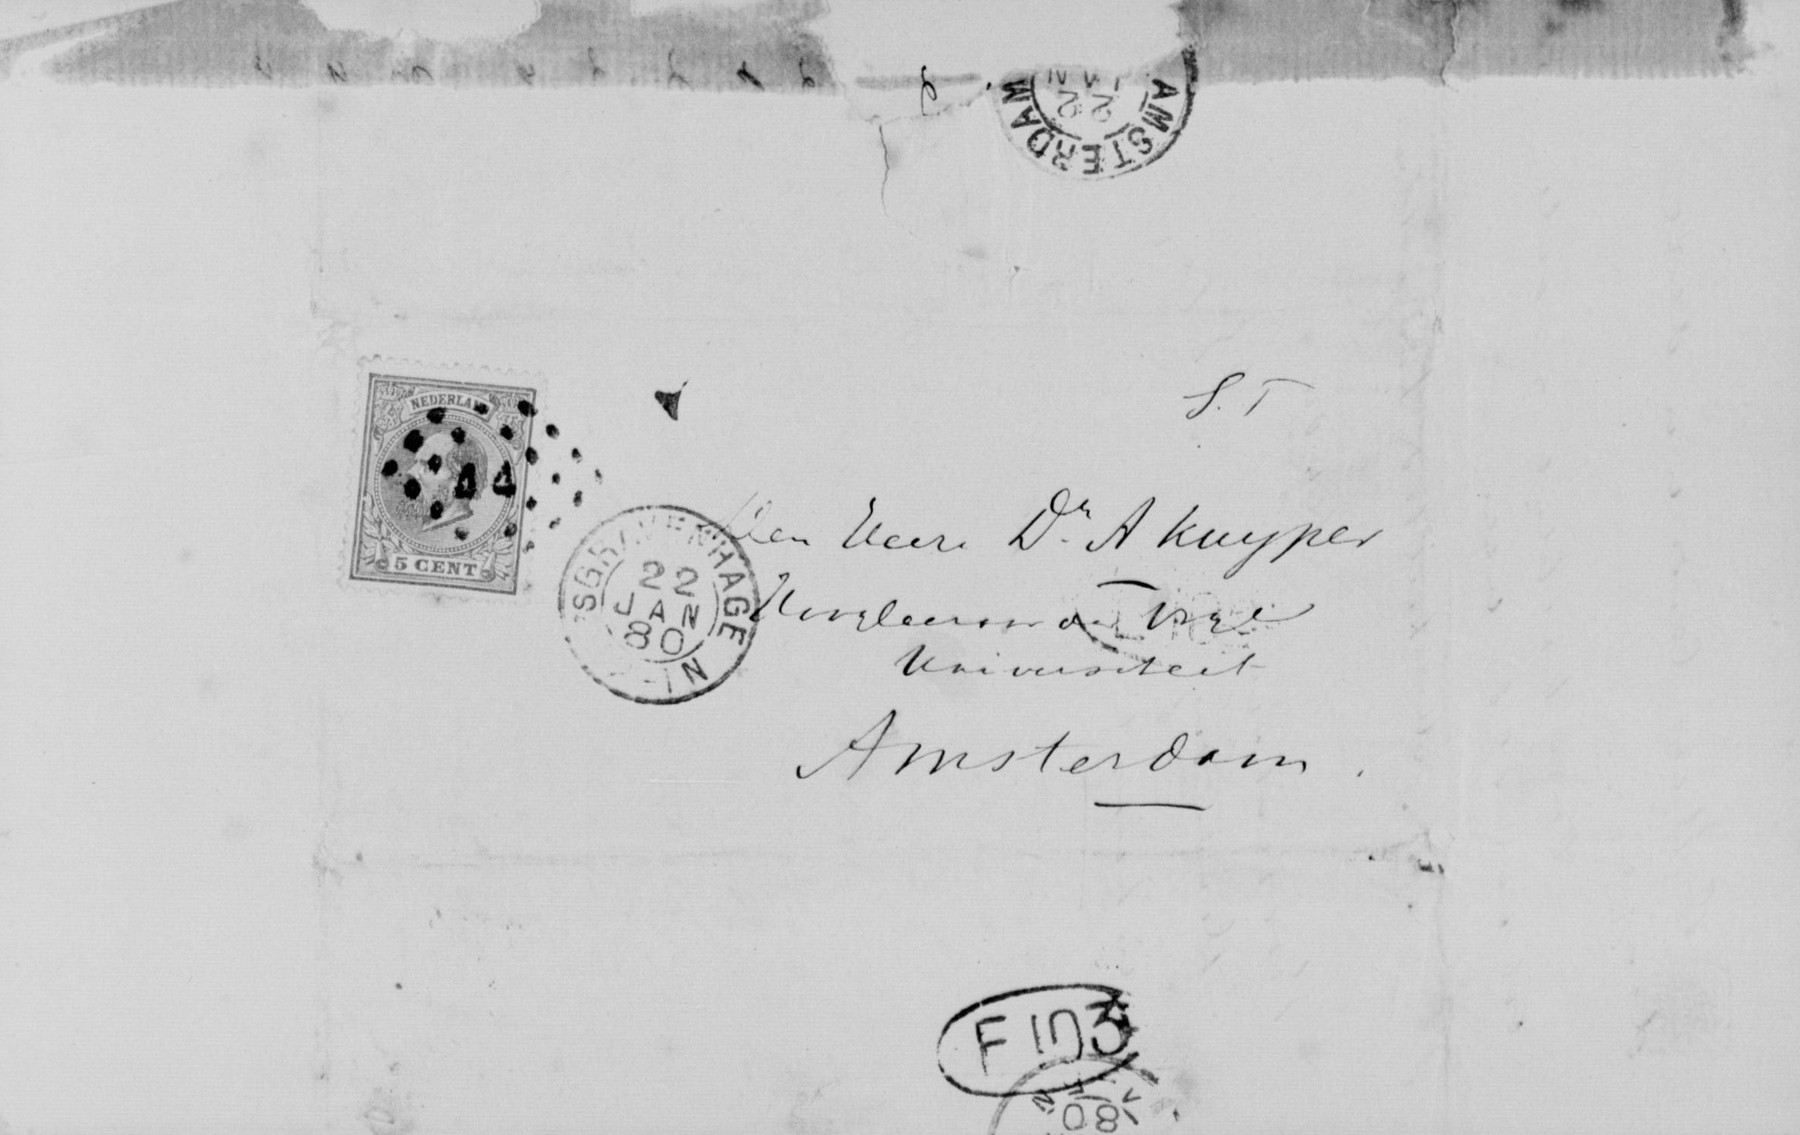 AMSTERDAM
NEDERLAND
44
5 CENT
'SGRAVENHAGE
22
JAN
80
S. T
Den Heere Dr. A Kuyper
Hoogleeraar a/d Vrye
Universiteit
Amsterdam.
F 103
80